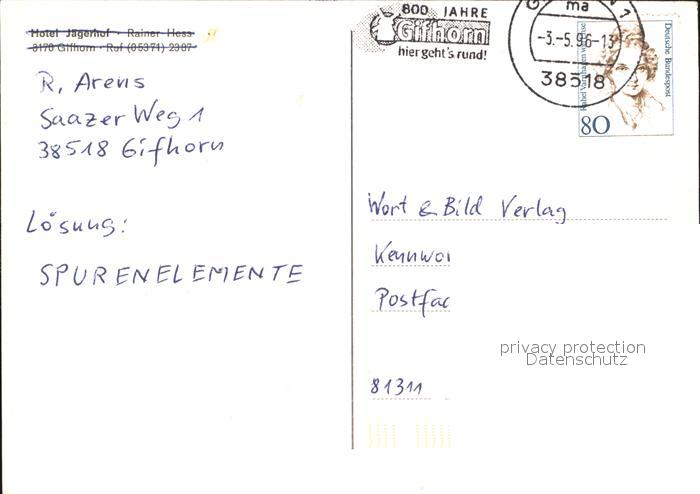 Hotel Jägerhof · Rainer Hess
3170 Gifhorn · Ruf (05371) 2307
R. Arens
Saazer Weg 1
38518 Gifhorn
Lösung:
SPURENELEMENTE
800 JAHRE
Gifhorn
hier geht's rund!
ma
-3.-5.96-13
38518
Deutsche Bundespost
80
Wort & Bild Verlag
Kennwor
Postfac
81311
privacy protection
Datenschutz